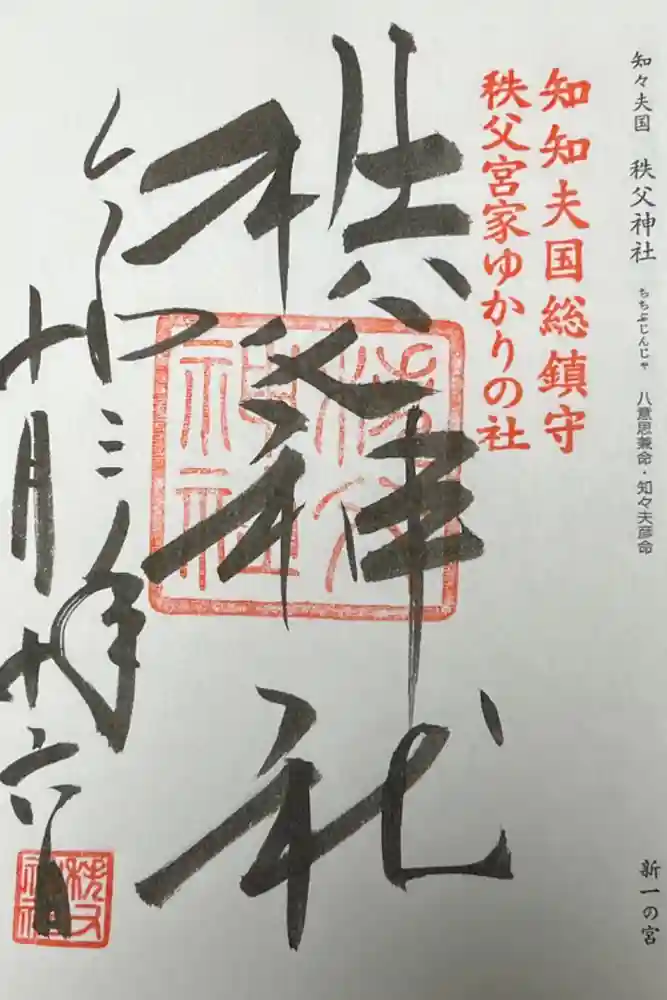 知々夫国 秩父神社 ちちぶじんじゃ 八意思兼命・知々夫彦命
新一の宮
知知夫国総鎮守
秩父宮家ゆかりの社
秩父神社
秩父神社
令和三年
十月十六日
秩父神社